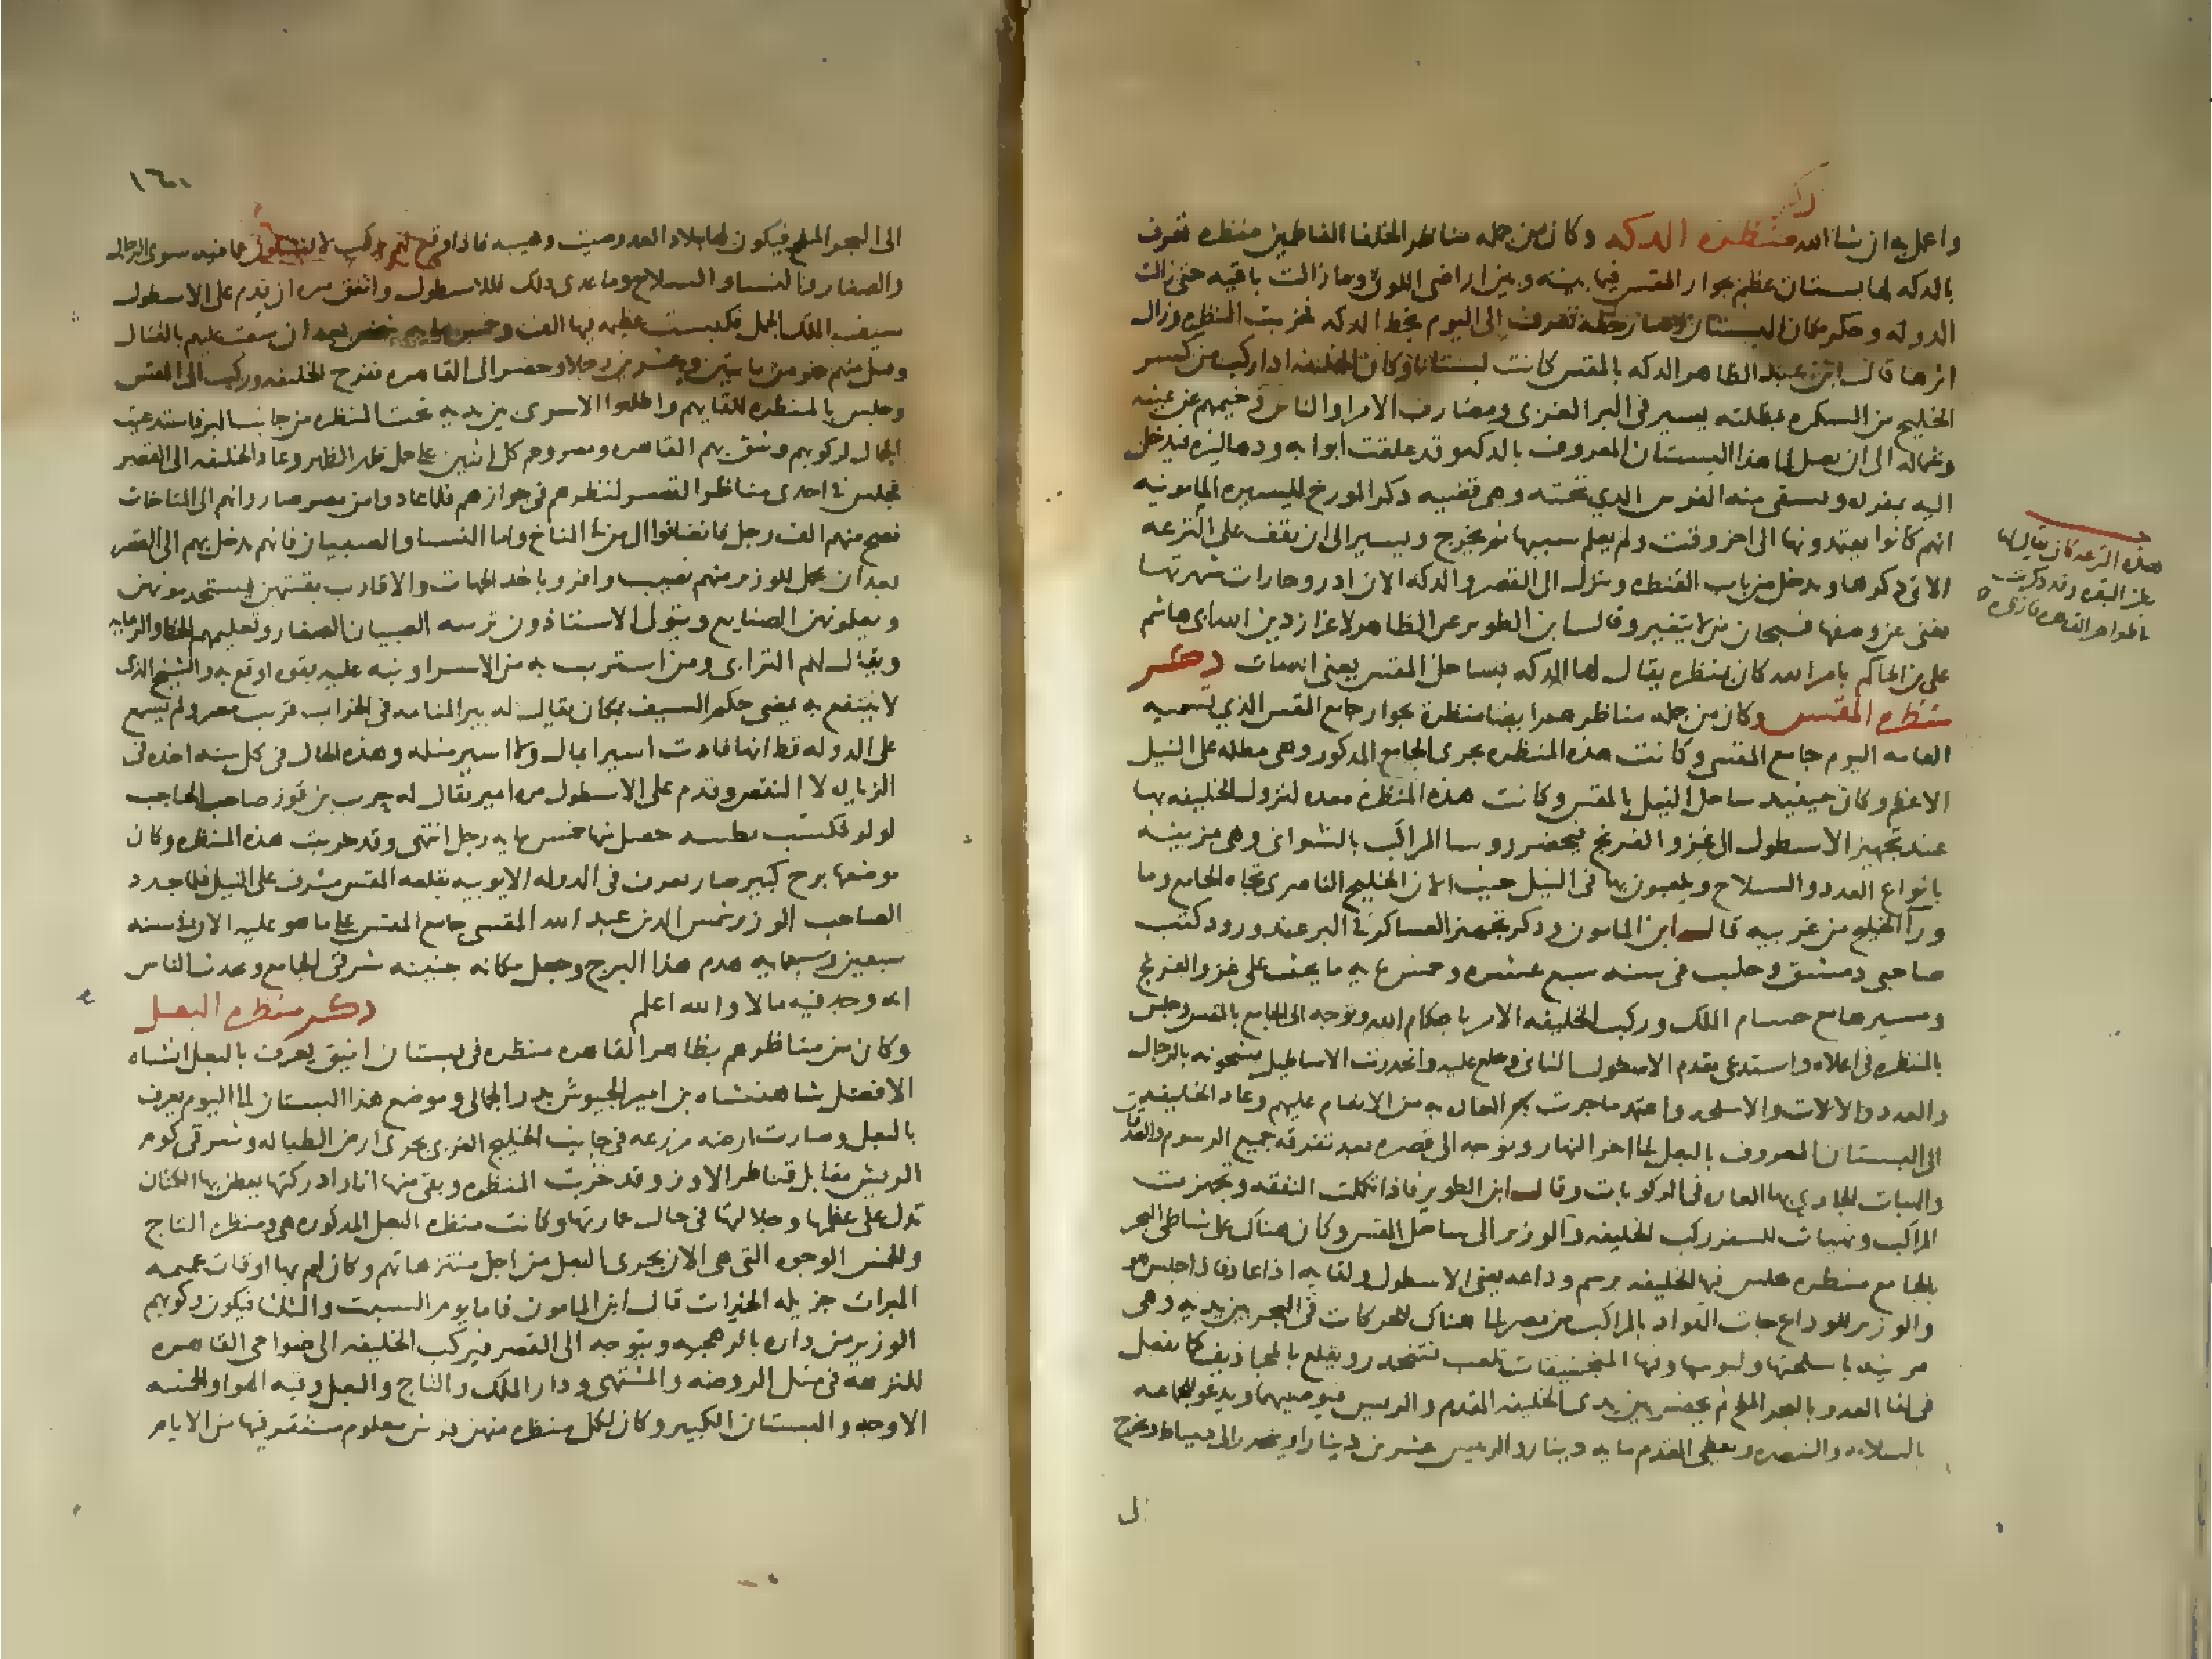 واعمل به ان شا الله منتظره الدكه وكان من جمله مناظر الخلفا الفاطميين منظره تعرف
بالدكه لها بستان عظيم بجوار المقس فيما بينه وبين اراضى اللوق وما زالت باقيه حتى زالت
الدوله وحكر مكان البستان وصار خطه تعرف الى اليوم بخط الدكه فخربت المنظره وزال
اثرها قال ابن عبد الظاهر الدكه بالمقس كانت بستانا وكان الخليفه اذا ركب من كسر
الخليج من السكره بمظلته يسير فى البر الغربى ومضارب الامرا والناس وخيمهم عن يمينه
وشماله الى ان يصل الى هذا البستان المعروف بالدكه وقد غلقت ابوابه ودهاليزه فيدخل
اليه بمفرده ويسقى منه الفرس الدي تحته وهى قضيه ذكر المورخ للسيره المامونيه
انهم كانوا يعتمدونها الى اخر وقت ولم يعلم سببها ثم يخرج ويسير الى ان يقف على الترعه
الاتى ذكرها ويدخل من باب القنطره وينزل الى القصر والدكه الان ادر وحارات شهرتها
تغنى عن وصفها فسبحان من لا يتغير وقال ابن الطوير عن الظاهر لاعزاز دين الله ابى هاشم
على بن الحاكم بامر الله كان بمنظره يقال لها الدكه بساحل المقس يعنى انه مات ذكر
منظره المقس وكان من جمله مناظرهم ايضا منظرة بجوار جامع المقس الذي تسميه
العامه اليوم جامع المقسى وكانت هذه المنظره بحرى الجامع المذكور وهى مطله على النيل
الاعظم وكان حينيذ ساحل النيل بالمقس وكانت هذه المنظرة معده لنزول الخليفه بها
عند تجهيز الاسطول الى غزو الفرنج فيحضر روسا المراكب بالشوانى وهى مزينه
بانواع العدد والسلاح ويلعبون بها فى النيل حيث الان الخليج الناصرى تجاه الجامع وما
ورآ الخليج من غربيه قال ابن المامون وذكر تجهيز العساكر فى البر عند ورود كتب
صاحبى دمشق وحلب فى سنه سبع عشره وخمس مايه ما يحث على غزو الفرنج
ومسيرها مع حسام الملك وركب الخليفه الامر باحكام الله وتوجه الى الجامع بالمقس وجلس
بالمنظره فى اعلاه واستدعى مقدم الاسطول الثانى وخلع عليه وانحدرت الاساطيل مشحونه بالرجال
والعدد والالات والاسلحه واعتمد ما جرت به العاده من الانعام عليهم وعاد الخليفه
الى البستان المعروف بالبعل الى اخر النهار وتوجه الى قصره بعد تفرقه جميع الرسوم والصدقات
والهبات الجاري بها العاده فى الركوبات وقال ابن الطوير فاذا تكملت النفقه وتجهزت
المراكب وتهيات للسفر ركب الخليفه والوزير الى ساحل المقس وكان هناك على شاطى البحر
بالجامع منظره يجلس فيها الخليفه برسم وداعه يعنى الاسطول ولقايه اذا عاد فاذا جلس هو
والوزير للوداع جات القواد بالمراكب من مصر الى هناك للحركات فى البحر بين يديه وهى
مزينه باسلحتها ولبوسها وفيها المنجنيقات تلعب فتنحدر وتقلع بالمجاذيف كما يفعل
فى لقا العدو بالبحر الملح ثم يحضر بين يدى الخليفه المقدم والرييس فيوصيهما ويدعو للجماعه
بالسلامه والنصره ويعطى المقدم مايه دينار والرييس عشرين دينارا وينحدر الى دمياط ويخرج
ال
هذه الترعه كان يقال لها
بطن البقره وقد ذكرت
ظواهر القاهره
١٦٠
الى البحر الملح فيكون لها ببلاد العدو صيت وهيبه فاذا وقع لهم مركب لا يسالون عما فيه سوى الرجال
والصغار والنسا والسلاح وما عدى ذلك فللاسطول واتفق مره ان قدم على الاسطول
سيف الملك الجمل فكسب بطسه عظيمه فيها الف وخمس مايه شخص بعد ان بعث عليهم بالقتال
وقتل منهم نحو من مايتين وعشرين رجلا وحضر الى القاهره ففرح الخليفه وركب الى المقس
وجلس بالمنظره للقايهم واطلعوا الاسرى بين يديه تحت المنظره من جانب البر فاستدعيت
الجمال لركوبهم وشق بهم القاهره ومصر وهم كل اثنين على جمل ظهر الظهر وعاد الخليفه الى القصر
فجلس فى احدى مناظر القصر لنظرهم فى جوازهم فلما عادوا من مصر صاروا بهم الى المناخات
فصح منهم الف رجل فانضافوا الى من فى المناخ واما النسا والصبيان فانهم يدخل بهم الى القصر
بعد ان يحمل للوزير منهم نصيب وافر وياخذ الجهات والاقارب بقيتهن فيستخدمونهن
ويعلمونهن الصنايع ويتولى الاستاذون تربيه الصبيان الصغار وتعليمهم الخط والرمايه
ويقال لهم الترابى ومن استريب به من الاسرا ونبه عليه بقوه اوقع به والشيخ الذى
لا ينتفع به يمضى حكم السيف بمكان يقال له بير المنامه فى الخراب قريب مصر ولم يسمع
على الدوله قط انها فادت اسيرا بمال ولا اسير مثله وهذه الحال فى كل سنه اخذه فى
الزياده لا النقص وقدم على الاسطول مره امير يقال له حرب بن فوز صاحب الحاجب
لولو فكسب بطسه حصل فيها خمس مايه رجل انتهى وقد خربت هذه المنظره وكان
موضعها برج كبير صار يعرف فى الدوله الايوبيه بقلعه المقس مشرف على النيل فلما جدد
الصاحب الوزير شمس الدين عبد الله المقسى جامع المقس على ما هو عليه الان فى سنه
سبعين وسبعمايه هدم هذا البرج وجعل مكانه جنينه شرقى الجامع وتحدث الناس
انه وجد فيه مالا والله اعلم ذكر منظره البعل
وكان من مناظرهم بظاهر القاهره منظره فى بستان انيق يعرف بالبعل انشاه
الافضل شاهنشاه بن امير الجيوش بدر الجمالى وموضع هذا البستان الى اليوم يعرف
بالبعل وصارت ارضه مزرعه فى جانب الخليج الغربى بحرى ارض الطباله وشرقى كوم
الريش مقابل قناطر الاوز وقد خربت المنظره وبقى منها اثار ادركتها يعطن بها الكتان
تدل على عظمها وجلالتها فى حال عمارتها وكانت منظره البعل المذكوره هى ومنظره التاج
والخمس الوجوه التى هى الان بحرى البعل من اجل منتزهاتهم وكان لهم بها اوقات عميمه
المبرات جزيله الخيرات قال ابن المامون فاما يوم السبت والثلثا فيكون ركوبهم
الوزير من داره بالرهجيه ويتوجه الى القصر فيركب الخليفه الى ضواحى القاهره
للنزهة فى مثل الروضه والمشتهى ودار الملك والتاج والبعل وقبه الهوا والخمسه
الاوجه والبستان الكبير وكان لكل منظره منهن فرش معلوم مستقر فيها من الايام